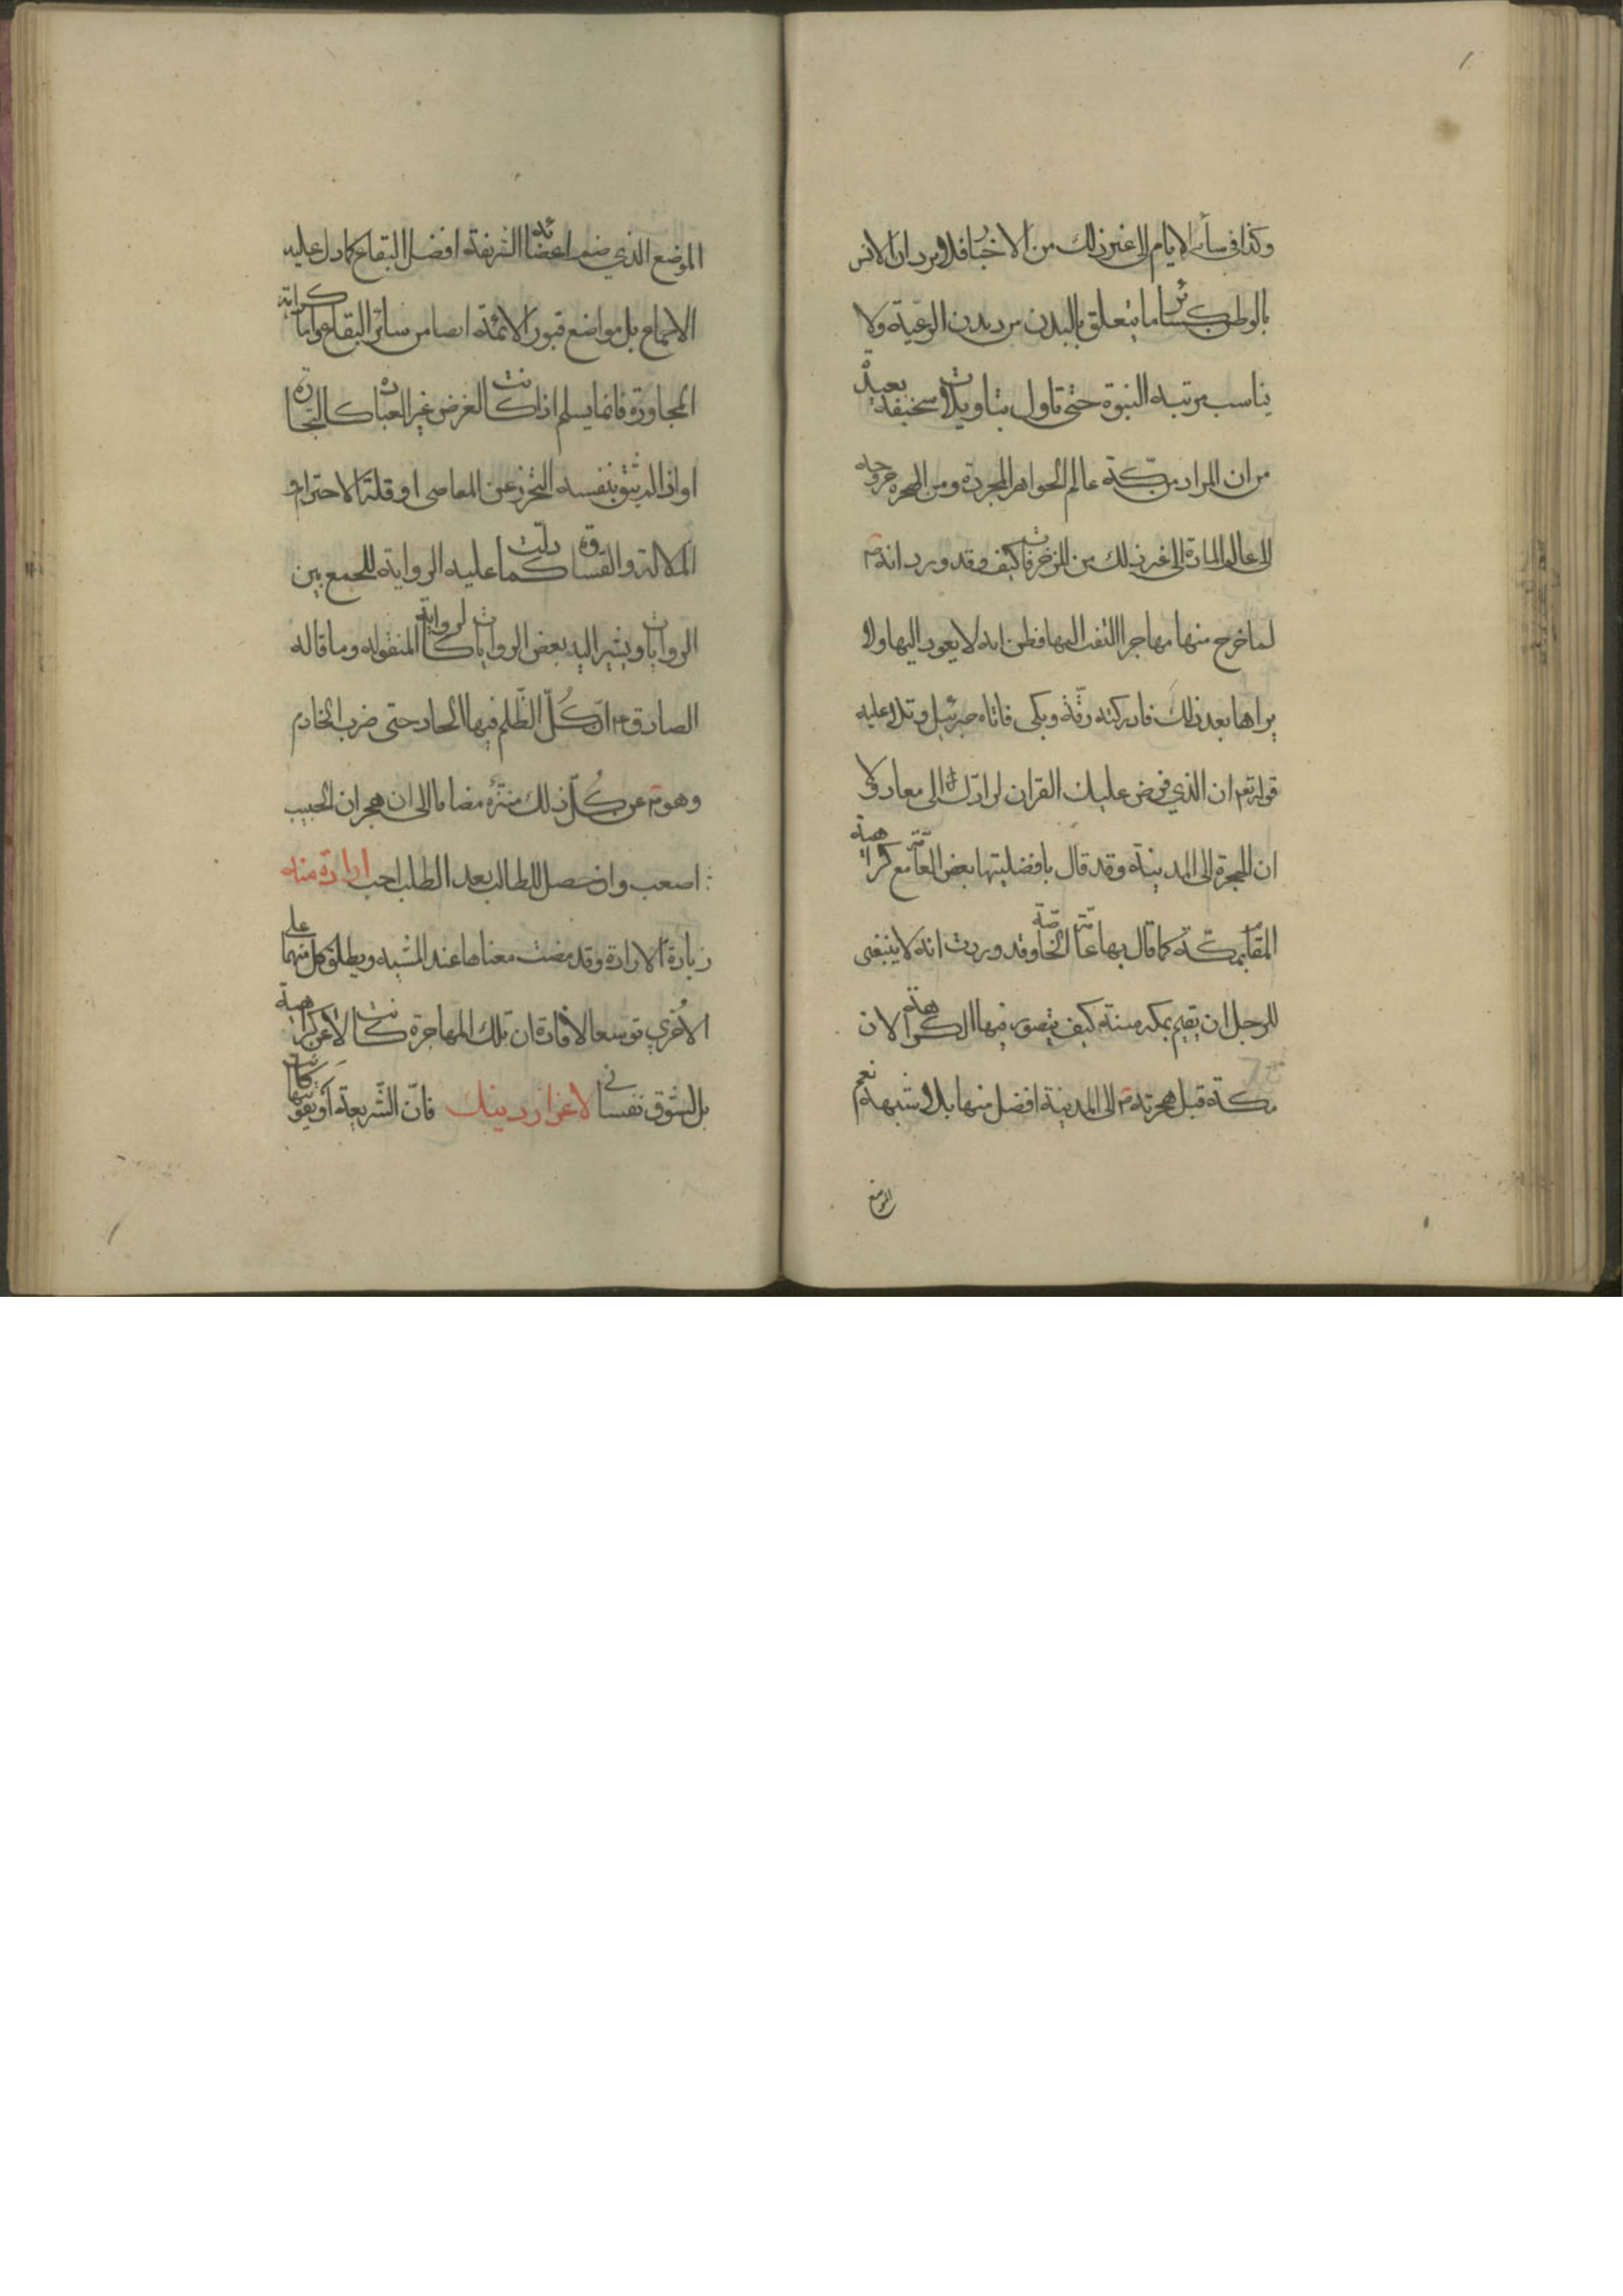 وكذا في سائر الايام الى غير ذلك من الاخبار فلا يرد ان الانس
بالوطن كسائر ما يتعلق بالبدن من ديدن الرعية ولا
يناسب مرتبة النبوة حتى تاول بتاويلات سخيفة بعيدة
من ان المراد من مكّة عالم الجواهر المجردة ومن الهجرة خروجه
الى عالم المادة الى غير ذلك من المزخرفات كيف وقد ورد انه ص
لما خرج منها مهاجرا التفت اليها فظن انه لا يعود اليها ولا
يراها بعد ذلك فادركته رقّة وبكى فاتاه جبرئيل وتلا عليه
قوله تع ان الذي فرض عليك القران لرادّك الى معاد ولا
ان الهجرة الى المدينة وقد قال بافضليتها بعض العامّة مع كراهية
المقام بمكّة كما قال بها عامّة الخاصّة وقد وردت انه لا ينبغي
للرجل ان يقيم بمكة سنة كيف يتصور فيها الكراهة الان
مكة قبل هجرته ص الى المدينة افضل منها بلا شبهة نعم
الموضع
الموضع الذي ضم اعضائه الشريفة افضل البقاع كما دل عليه
الاجماع بل مواضع قبور الائمة ايضا من سائر البقاع واما كراهة
المجاورة فانما يسلم اذا كانت الغرض غير العبادة كالتجارة
او اذا لم يثق بنفسه التحرز عن المعاصي او قلة الاحترام و
الملالة والقساوة كما دلّت عليه الرواية للجمع بين
الروايات ويشير اليه بعض الروايات كالرواية المنقولة وما قاله
الصادق ع انّ كُلّ الظّلم فيها الحاد حتى ضرب الخادم
وهو ص عن كُلّ ذلك منزّه مضافا الى ان هجران الحبيب
اصعب وان حصل للطالب بعد الطلب احب ارادة منه
زيادة الارادة وقد مضت معناها عند المشية ويطلق كل منهما على
الاُخرى توسعا لافادة ان تلك المهاجرة كانت لا عن كراهية
بل لشوق نفساني لاعزاز دينك فانّ الشّريعة